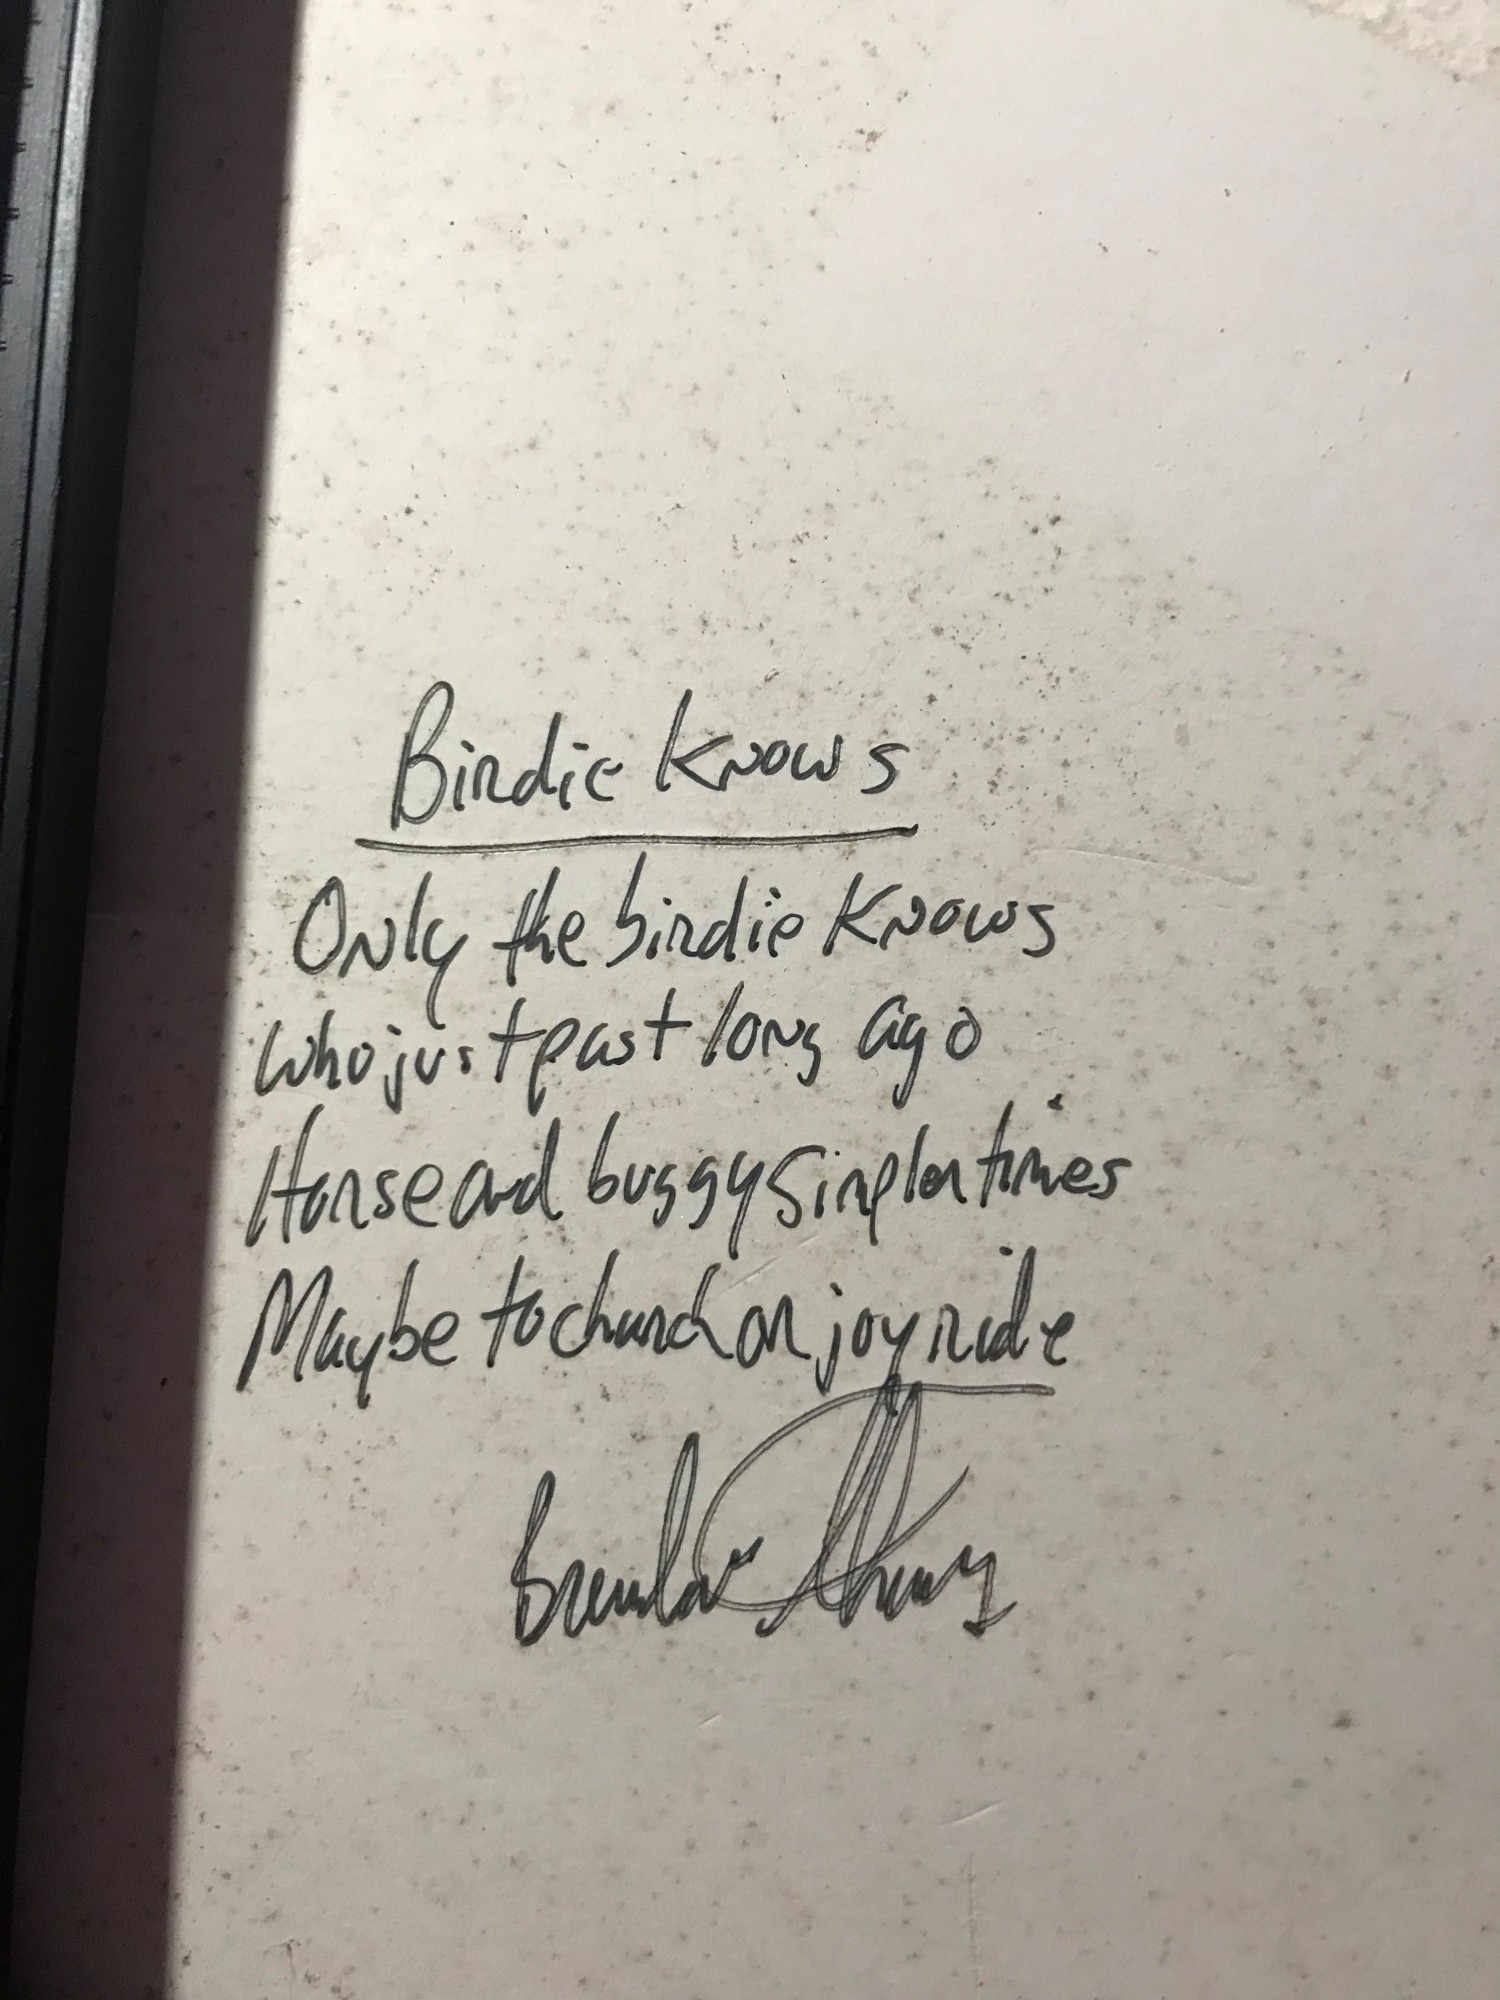 Birdie Knows
Only the birdie Knows
who just past long ago
Horse and buggy Simpler times
Maybe to church or joy ride